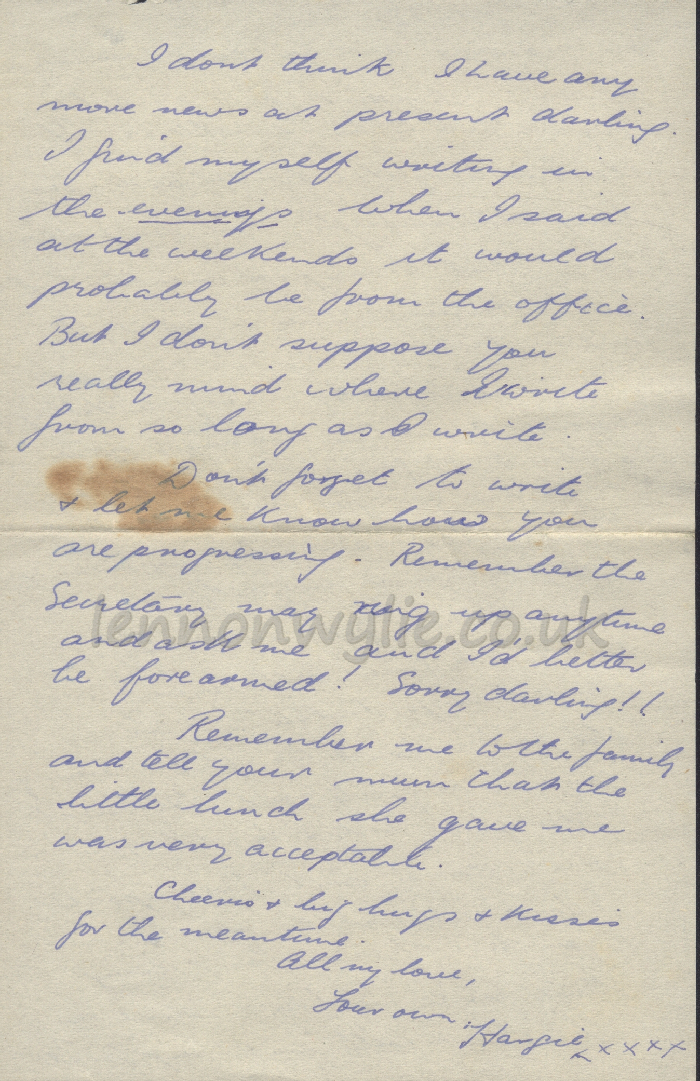 I dont think I have any
more news at present darling.
I find myself writing in
the evenings when I said
at the weekends it would
probably be from the office.
But I don't suppose you
really mind where I write
from so long as I write.
Don't forget to write
& let me know how you
are progressing. Remember the
Secretary may ring up anytime
and ask me and I'd better
be forearmed! Sorry darling!!
lennonwylie.co.uk
Remember me to the family
and tell your mum that the
little lunch she gave me
was very acceptable.
Cheerio & big hugs & kisses
for the meantime.
All my love,
Your own
xxxxx